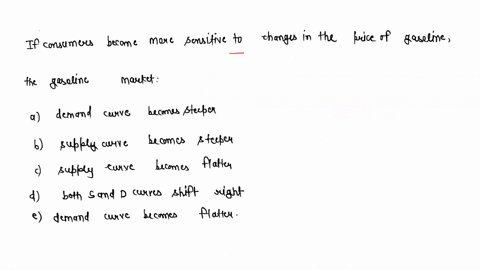 If consumers become more sensitive to changes in the price of gasoline,
the gasoline market:
a) demand curve becomes steeper
b) supply curve becomes steeper
c) supply curve becomes flatter
d) both S and D curves shift right
e) demand curve becomes flatter.